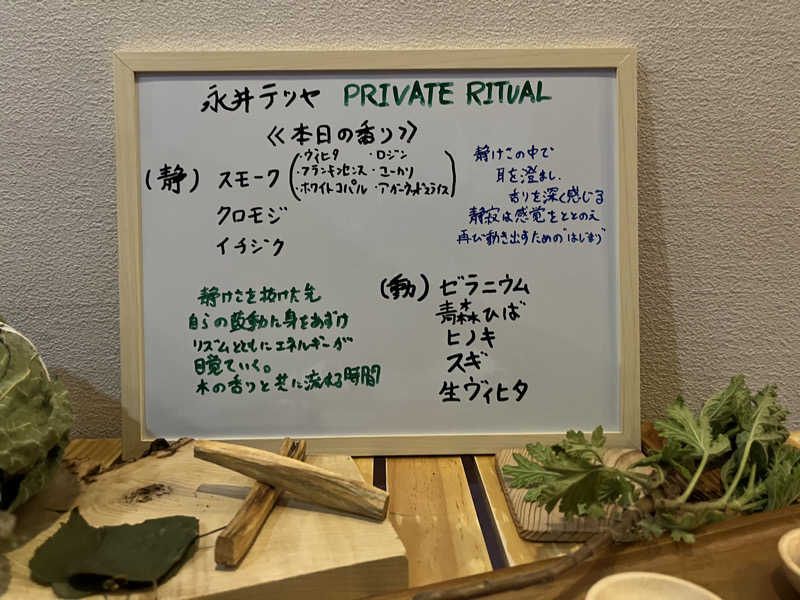 永井テツヤ PRIVATE RITUAL
《本日の香り》
(静) スモーク (・ヴィヒタ ・ロジン
・フランキンセンス ・ユーカリ
・ホワイトコパル ・アガーウッドスライス)
クロモジ
イチジク
静けさの中で
耳を澄まし、
香りを深く感じる
静寂は感覚をととのえ
再び動き出すための"はじまり"
静けさを抜けた先
自らの鼓動に身をあずけ
リズムとともにエネルギーが
目覚ていく。
木の香りと共に流れる時間
(動) ゼラニウム
青森ひば
ヒノキ
スギ
生ヴィヒタ